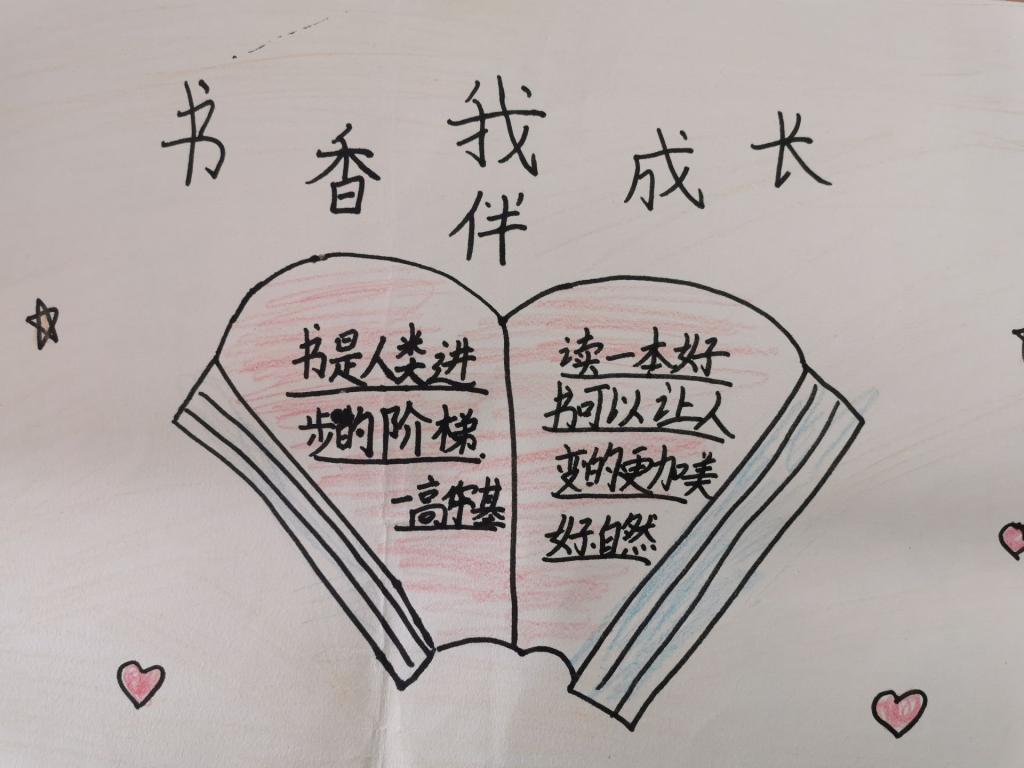 书香我伴成长
书是人类进
步的阶梯.
—高尔基
读一本好
书可以让人
变的更加美
好.自然